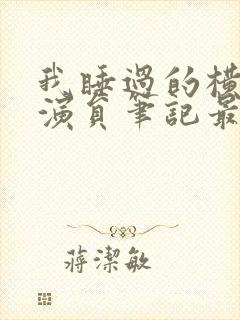 我睡過的橫
演員筆記最
蔣潔敏